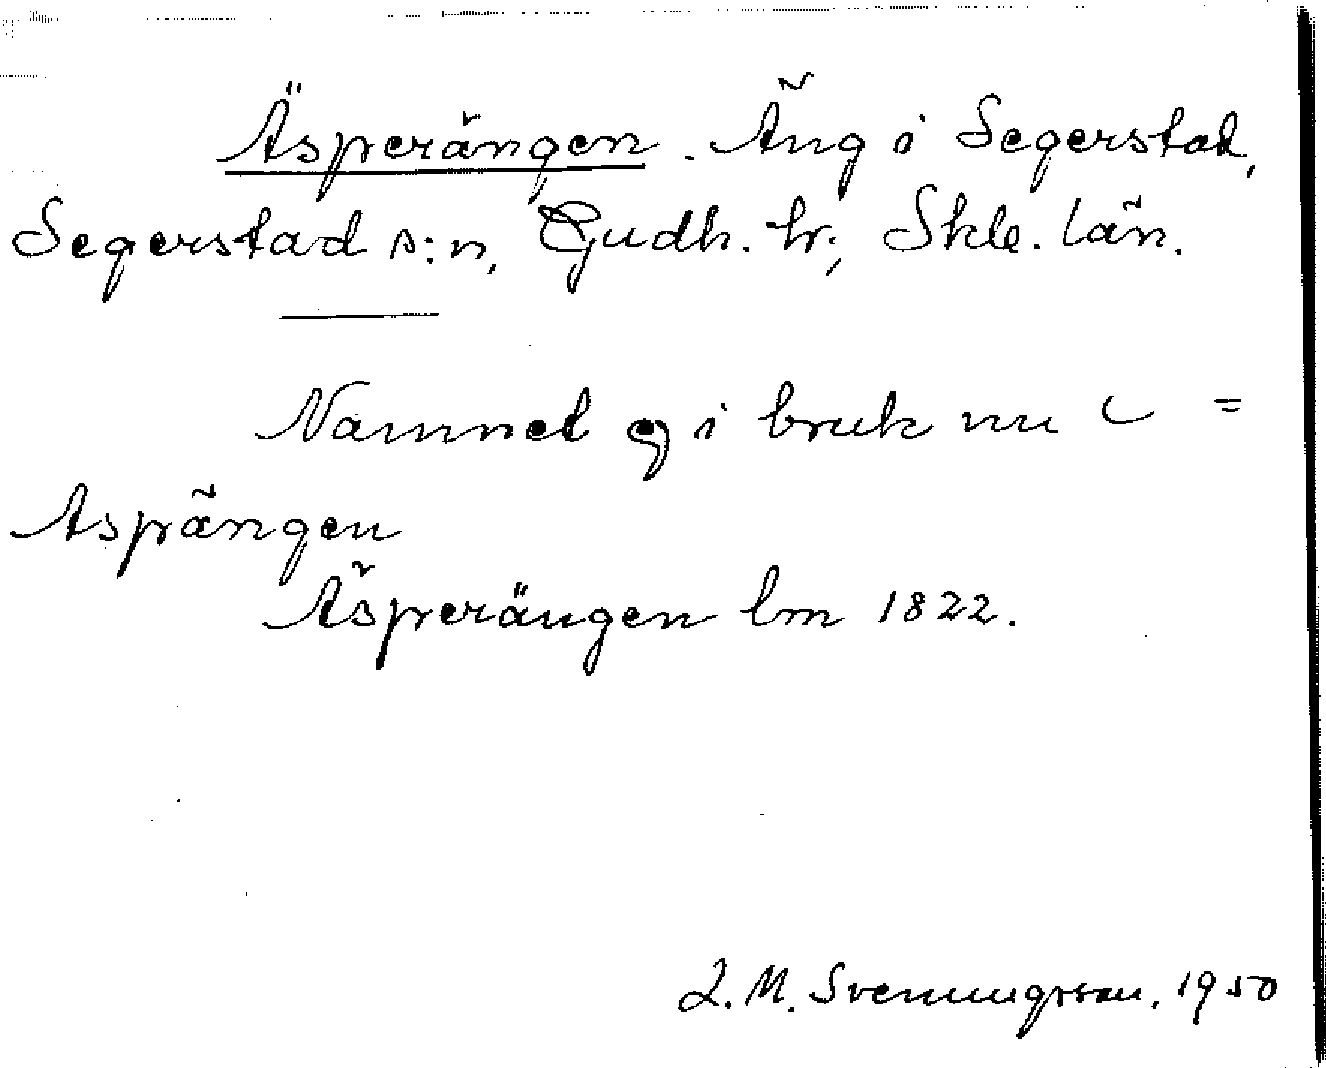 Äsperängen. Äng i Segerstad,
Segerstad s:n, Gudh. hr., Skbg. län.
Namnet ej i bruk nu =
Aspängen
Äsperängen lm 1822.
L. M. Svenungsson, 1950